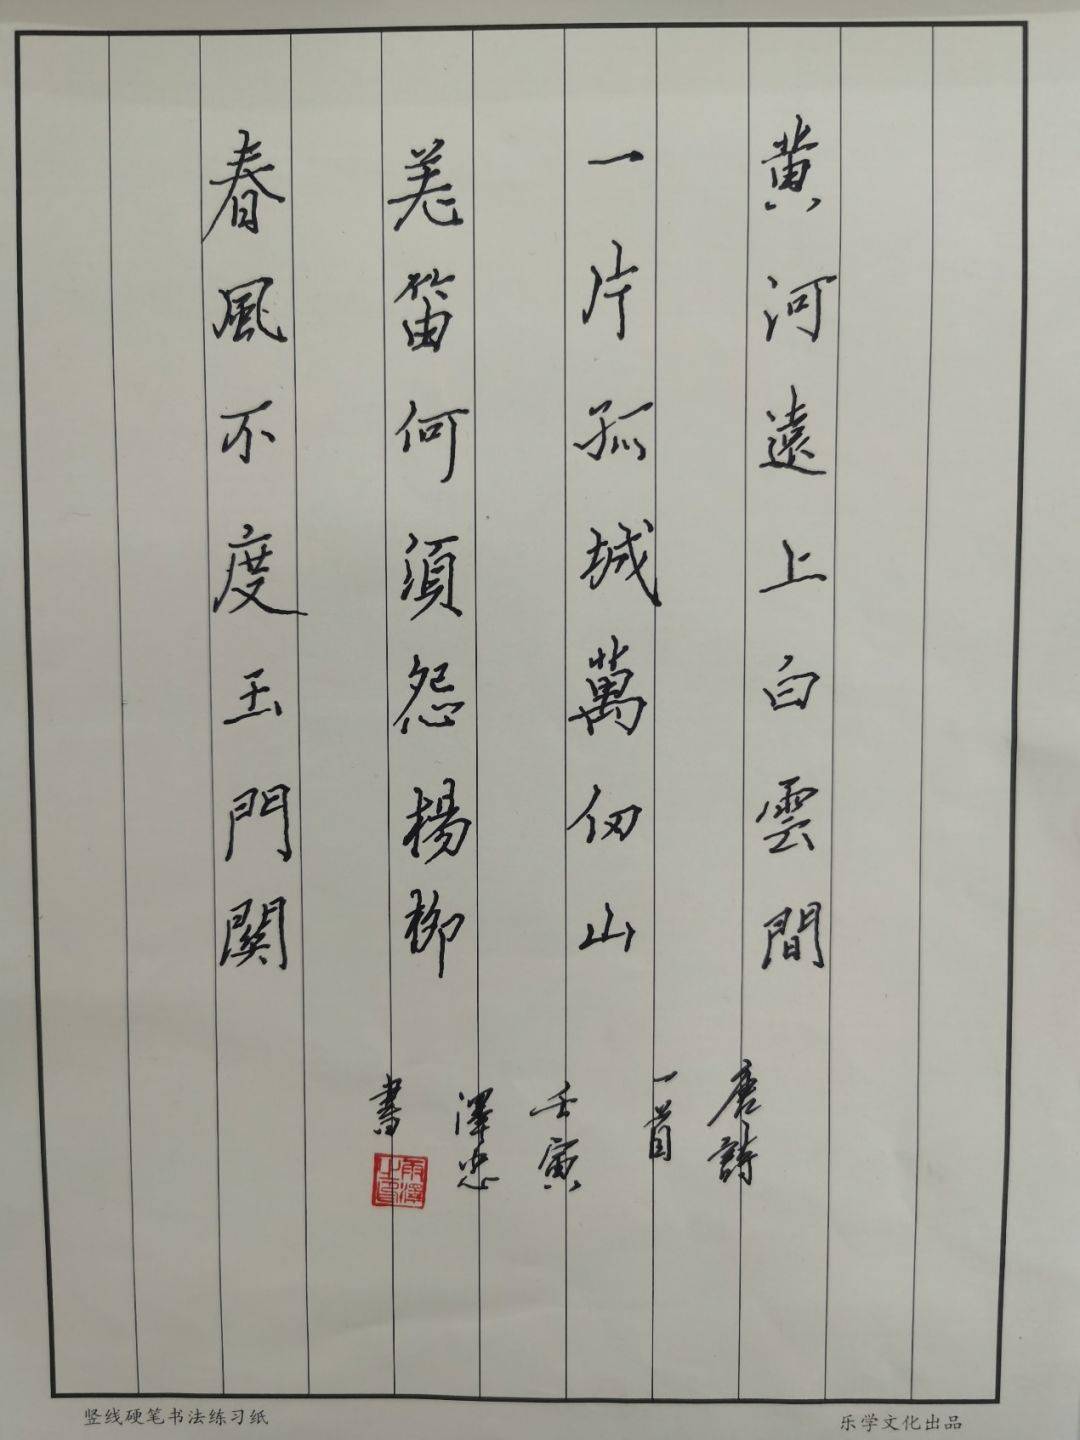 黄河遠上白雲間
一片孤城萬仞山
羌笛何須怨楊柳
春風不度玉門関
唐詩
一首
壬寅
澤忠
書
雨澤之印
竖线硬笔书法练习纸
乐学文化出品